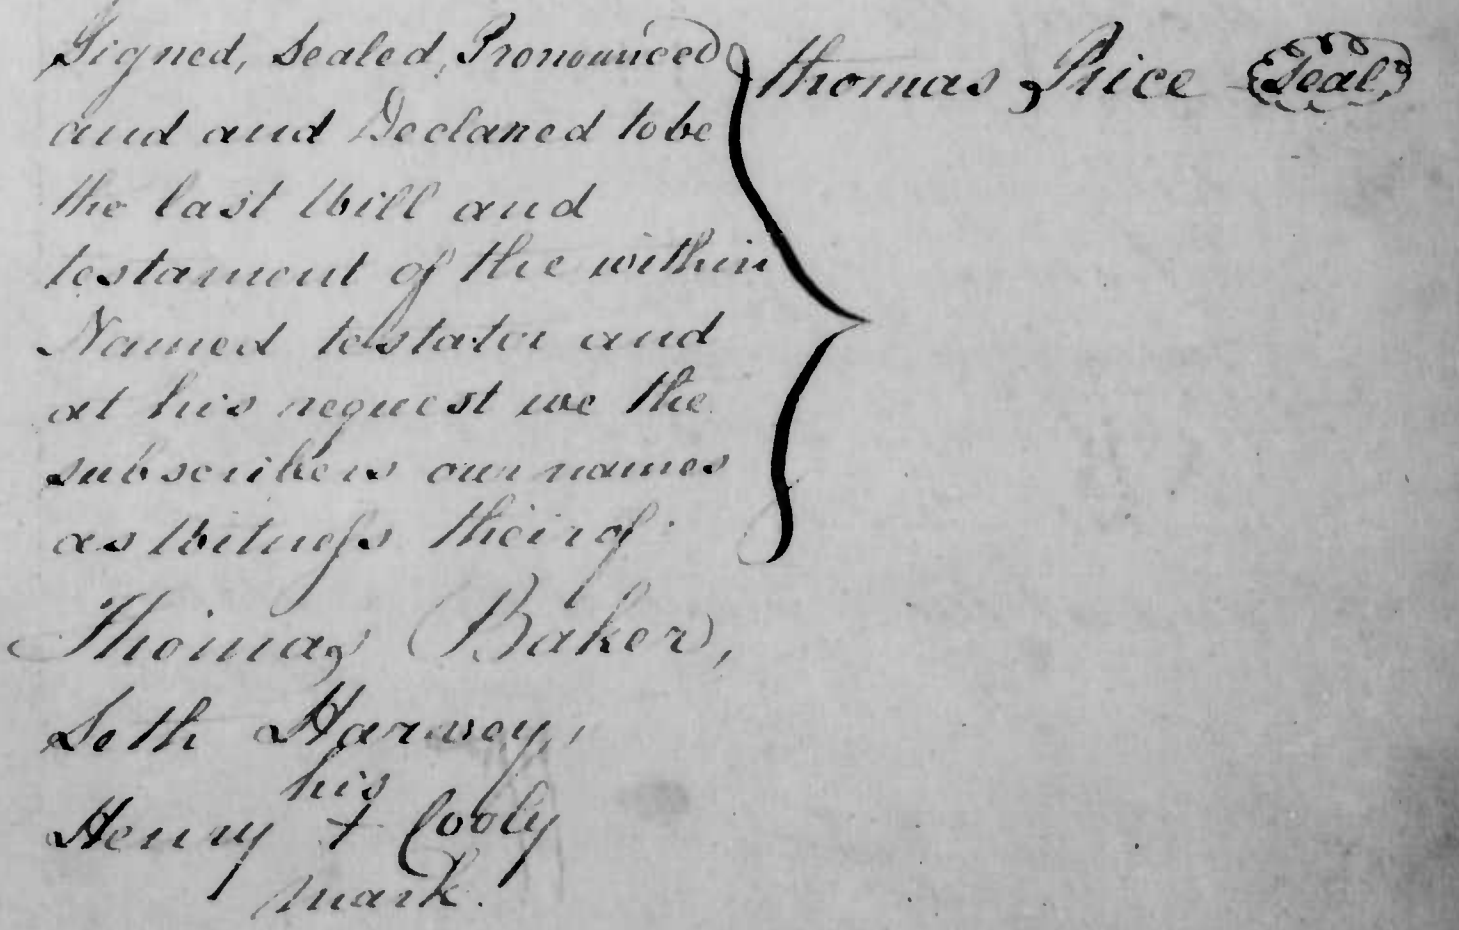 Signed, Sealed, Pronounced
and and Declared to be
the last Will and
testament of the within
Named testator and
at his request we the
subscribers our names
as Witness theirof.
thomas Price Seal
Thomas Baker,
Seth Harvey,
his
Henry + Cooly
mark.